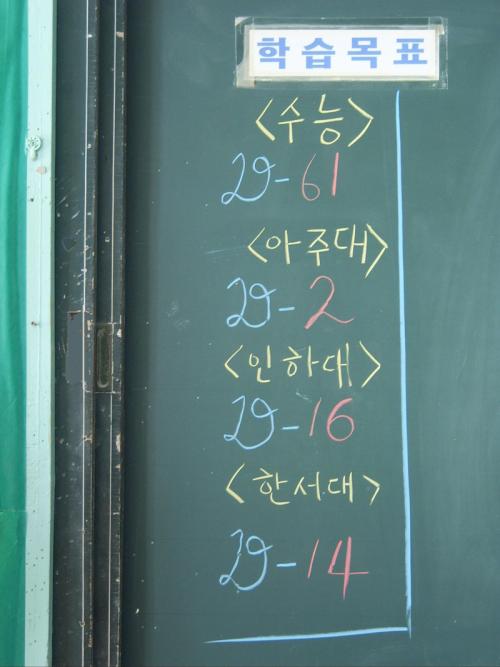 학습목표
<수능>
D-61
<아주대>
D-2
<인하대>
D-16
<한서대>
D-14